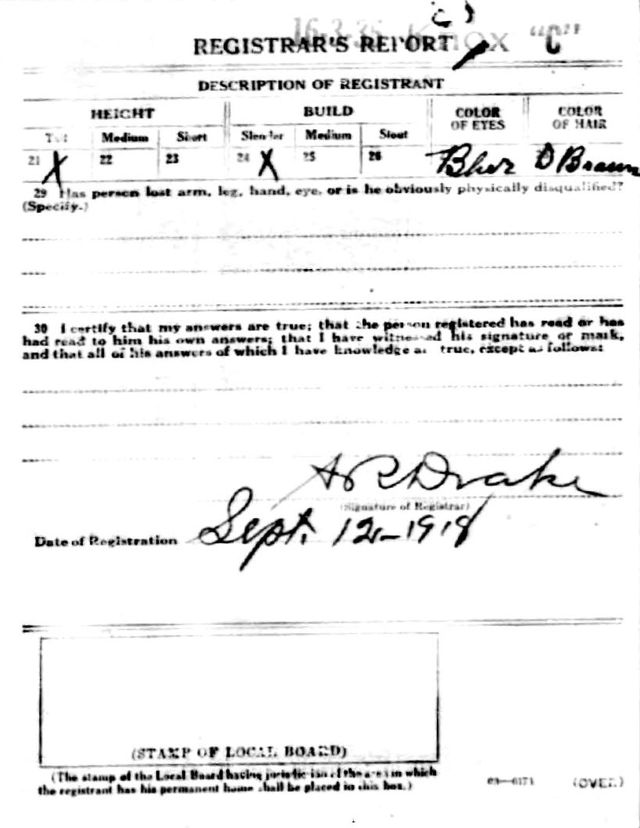 16-3-35 Knox "C"
REGISTRAR'S REPORT
DESCRIPTION OF REGISTRANT
HEIGHT BUILD COLOR OF EYES COLOR OF HAIR
Tall Medium Short Slender Medium Stout
21 X 22 23 24 X 25 26 Blue D Brown
29 Has person lost arm, leg, hand, eye, or is he obviously physically disqualified?
(Specify.)
30 I certify that my answers are true; that the person registered has read or has
had read to him his own answers; that I have witnessed his signature or mark,
and that all of his answers of which I have knowledge are true, except as follows:
Drake
(Signature of Registrar)
Date of Registration Sept. 12-1918
(STAMP OF LOCAL BOARD)
(The stamp of the Local Board having jurisdiction of the area in which
the registrant has his permanent home shall be placed in this box.)
03—6171 (OVER)